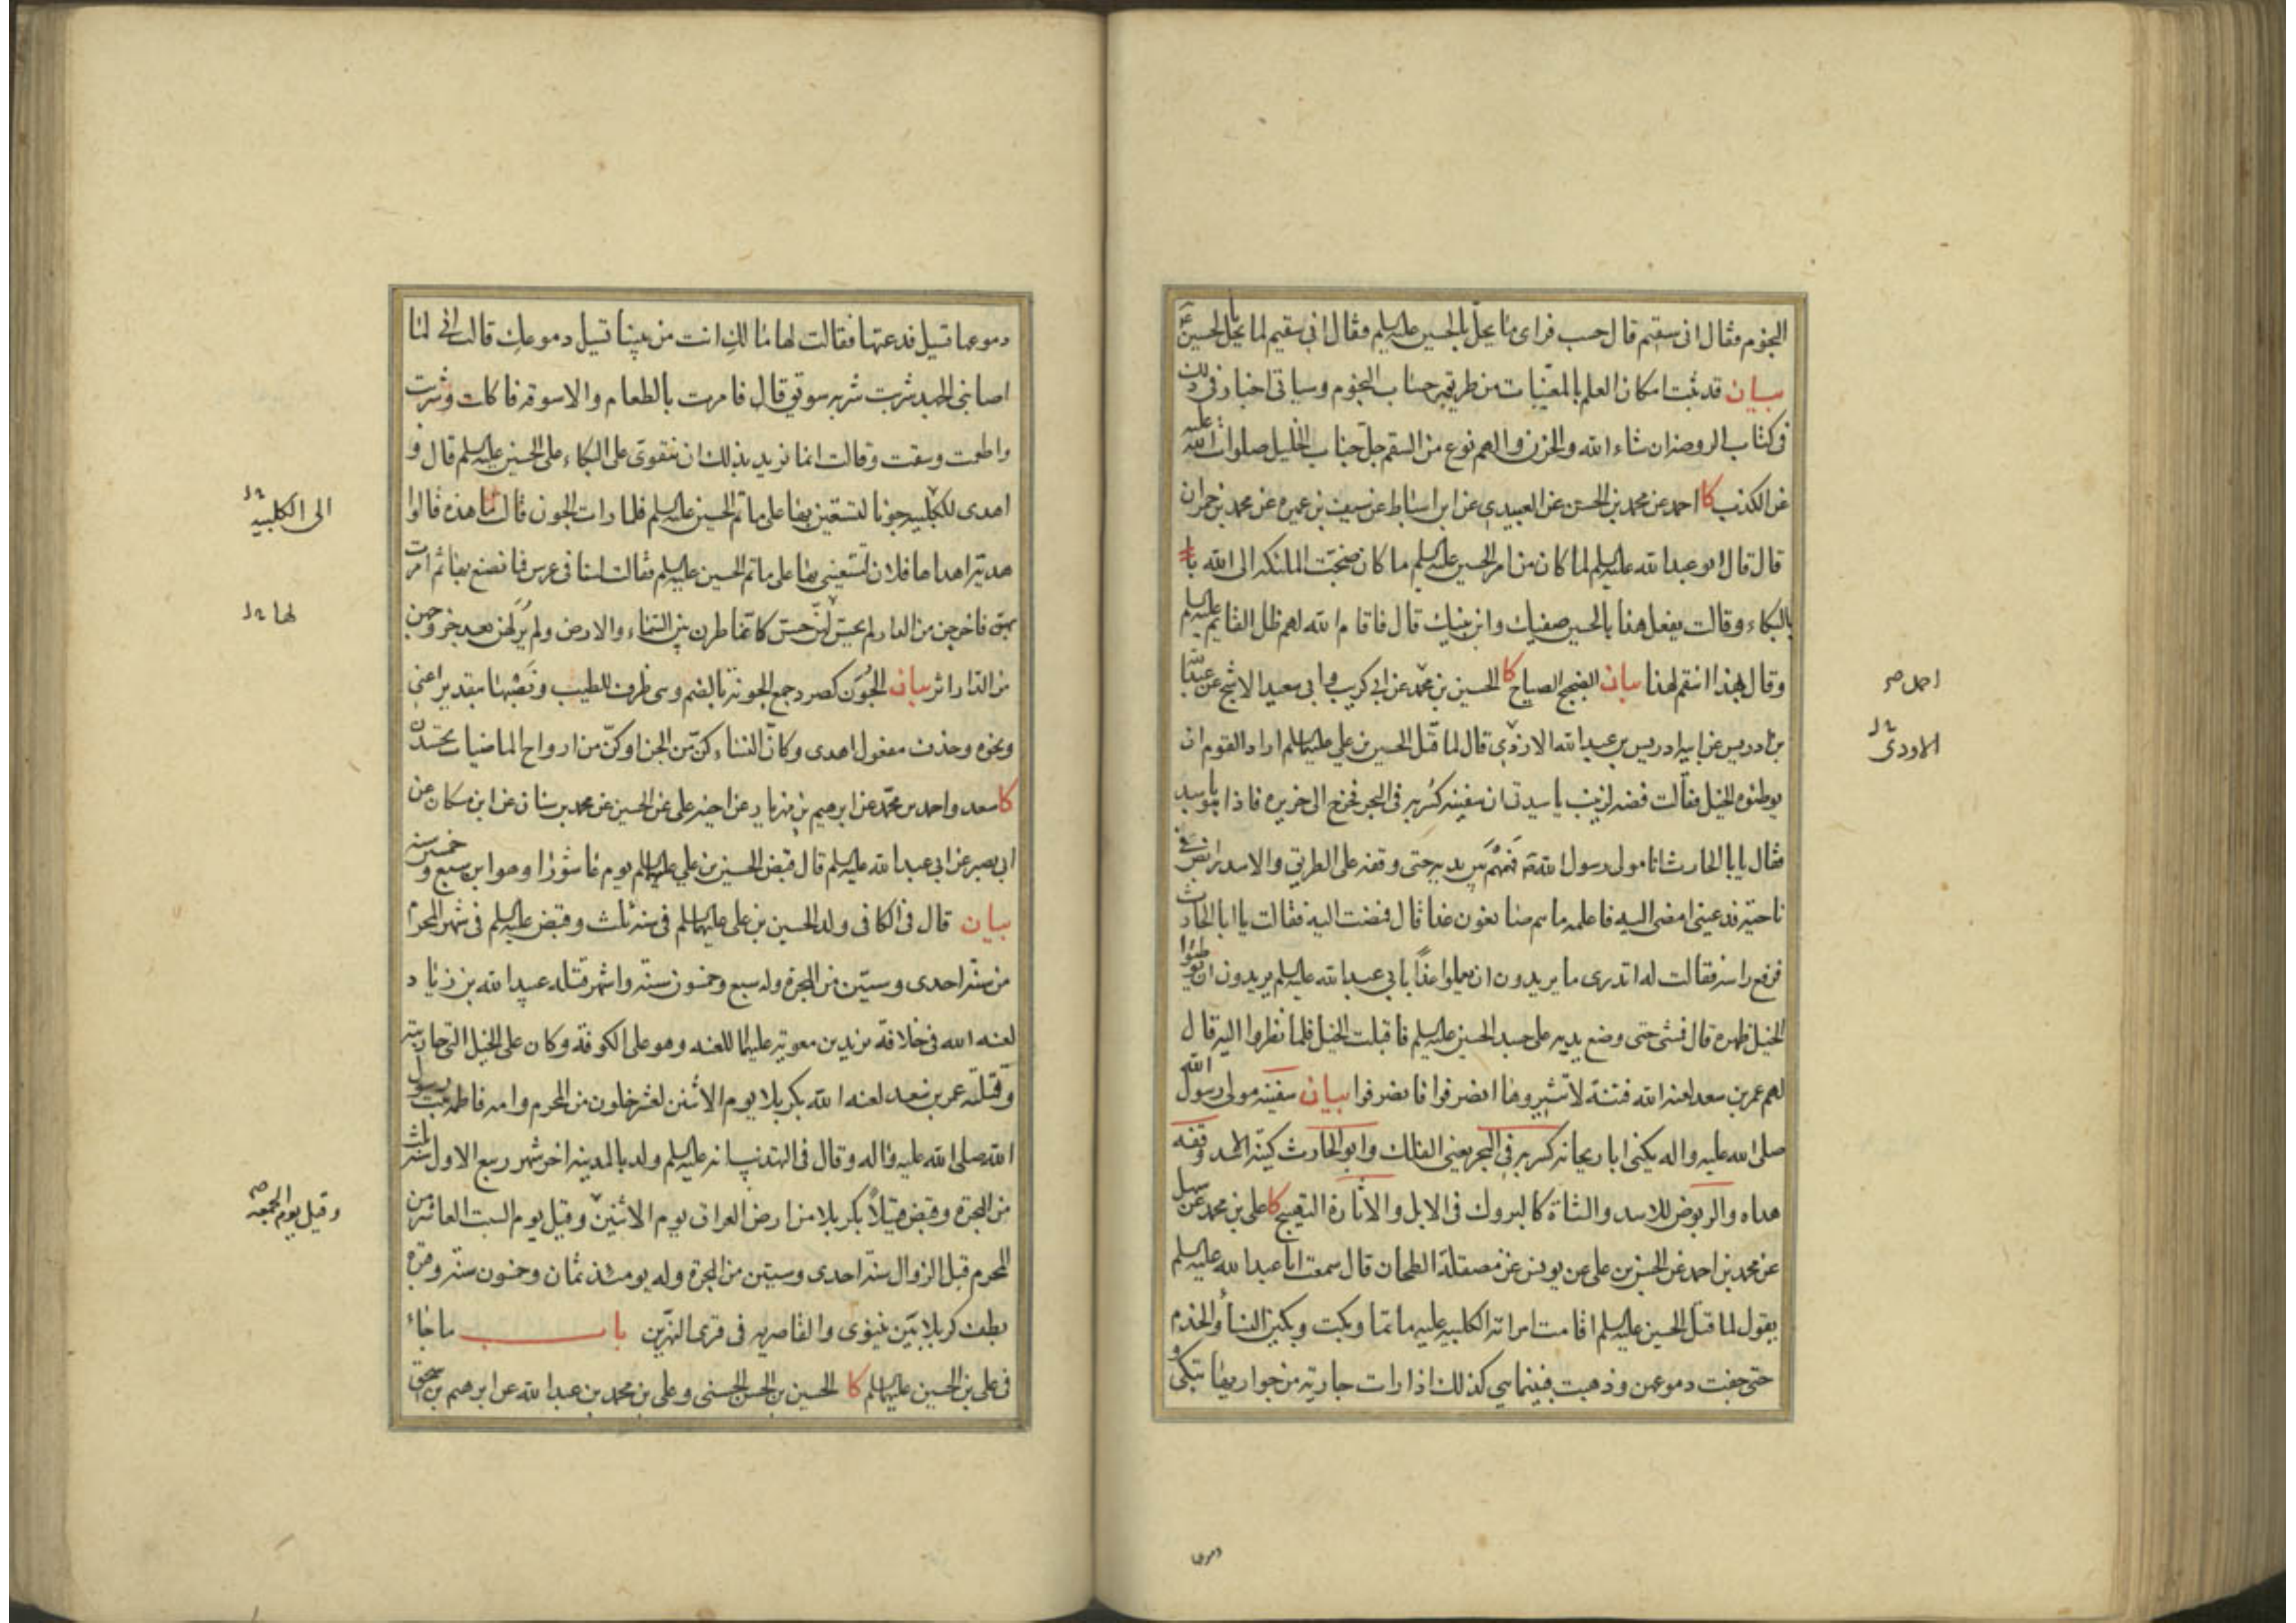 النجوم فقال انى سقيم قال حسب فراى ما يحل بالحسين عليه السلم فقال انى سقيم لما يحل بالحسين ع
بيان قد ثبت امكان العلم بالمغيبات من طريقة حساب النجوم وسياتى اخبار فى ذلك
فى كتاب الروضة ان شاء الله والحزن والهم نوع من السقم جل جناب الخليل صلوات الله عليه
عن الكذب كا احمد عن محمد بن الحسن عن العبيدى عن ابن اسباط عن سيف بن عميره عن محمد بن حمران
قال قال ابو عبدالله عليه السلم لما كان من امر الحسين عليه السلم ما كان ضجت الملئكة الى الله
بالبكاء وقالت يفعل هذا بالحسين صفيك وابن نبيك قال فاقام الله لهم ظل القايم عليه السلم
وقال بهذا انتقم لهذا بيان الضجيج الصياح كا الحسين بن محمد عن ابى كريب وابى سعيد الاشج عن عبدالله
بن ادريس عن ابيه ادريس بن عبدالله الازدى قال لما قتل الحسين بن على عليهما السلم اراد القوم ان
يوطئوه الخيل فقالت فضه لزينب يا سيدتى ان سفينه كسر به فى البحر فخرج الى جزيره فاذا هو باسد
فقال يابا الحارث انا مولى رسول الله ص فهمهم بين يديه حتى وقفه على الطريق والاسد رابض فى
ناحية فدعينى امضى اليه فاعلمه ما هم صانعون غدا قال فمضت اليه فقالت يا ابا الحارث
فرفع راسه فقالت له اتدرى ما يريدون ان يعملوا غدًا بابى عبدالله عليه السلم يريدون ان يوطئوا
الخيل ظهره قال فمشى حتى وضع يديه على جسد الحسين عليه السلم فاقبلت الخيل فلما نظروا اليه قال
لهم عمر بن سعد لعنه الله فتنة لا تثيروها انصرفوا فانصرفوا بيان سفينه مولى رسول الله
صلى الله عليه واله يكنى ابا ريحانه كسر به فى البحر يعنى الفلك وابو الحارث كنية الاسد وقفه
هداه والربوض للاسد والشاة كالبروك فى الابل والاثارة التهييج كا على بن محمد عن سهل
عن محمد بن احمد عن الحسن بن على عن يونس عن مصقلة الطحان قال سمعت ابا عبدالله عليه السلم
يقول لما قتل الحسين عليه السلم اقامت امراته الكلبيه عليه ماتما وبكت وبكين النساء والخدم
حتى جفت دموعهن وذهبت فبينما هى كذلك اذا رات جاريه من جواريها تبكى و
احمد صح
الاودى خ ل
دموعها
دموعها تسيل فدعتها فقالت لها ما لكِ انت من بيننا تسيل دموعكِ قالت انى لما
اصابنى الجهد شربت شربه سويق قال فامرت بالطعام والاسوقه فاكلت وشربت
واطعمت وسقت وقالت انما نريد بذلك ان نتقوى على البكاء على الحسين عليه السلم قال و
اهدى للكلبيه جونا لتستعين بها على ماتم الحسين عليه السلم فلما رات الجون قالت ما هذه قالوا
هدية اهداها فلان لتستعينى بها على ماتم الحسين عليه السلم فقالت لسنا فى عرس فما نصنع بها ثم امرت
بهن فاخرجن من الدار لم يحس لهن حس كانما طرن بين السماء والارض ولم يُر لهن بعد خروجهن
من الدار اثر بيان الجُوَن كصرد جمع الجونة بالضم وهى ظرف للطيب ونصبها بتقدير اعنى
ونحوه وحذف مفعول اهدى وكان النساء كن من الجن او كن من ارواح الماضيات تجسدن
كا سعد واحمد بن محمد عن ابرهيم بن مهزيار عن اخيه على عن الحسين عن محمد بن سنان عن ابن مسكان عن
ابى بصير عن ابى عبدالله عليه السلم قال قبض الحسين بن على عليهما السلم يوم عاشورا وهو ابن سبع وخمسين سنه
بيان قال فى الكافى ولد الحسين بن على عليهما السلم فى سنه ثلث وقبض عليه السلم فى شهر المحرم
من سنة احدى وستين من الهجرة وله سبع وخمسون سنة واشهر قتله عبيدالله بن زياد
لعنه الله فى خلافة يزيد بن معوية عليهما اللعنه وهو على الكوفة وكان على الخيل التى حاربته
وقتلته عمر بن سعد لعنه الله بكربلا يوم الاثنين لعشر خلون من المحرم وامه فاطمه بنت رسول
الله صلى الله عليه واله وقال فى التهذيب انه عليه السلم ولد بالمدينه اخر شهر ربيع الاول سنة ثلث
من الهجرة وقبض قتيلاً بكربلا من ارض العراق يوم الاثنين وقيل يوم السبت العاشر من
المحرم قبل الزوال سنة احدى وستين من الهجرة وله يومئذ ثمان وخمسون سنة وقبره
بطف كربلا بين نينوى والغاضريه فى قرى النهرين باب ما جاء
فى على بن الحسين عليهما السلم كا الحسين بن الحسن الحسنى وعلى بن محمد بن عبدالله عن ابرهيم بن اسحق
الى الكلبيه خ ل
لها خ ل
وقيل يوم الجمعه صح